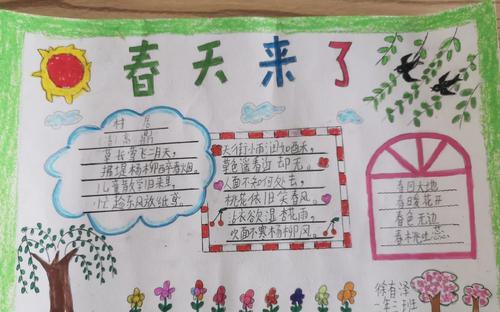 春天来了
村居
高鼎
草长莺飞二月天,
拂堤杨柳醉春烟。
儿童散学归来早,
忙趁东风放纸鸢。
天街小雨润如酥,
草色遥看近却无。
人面不知何处去,
桃花依旧笑春风。
沾衣欲湿杏花雨,
吹面不寒杨柳风。
春回大地
春暖花开
春色无边
春
徐有泽
一年二班